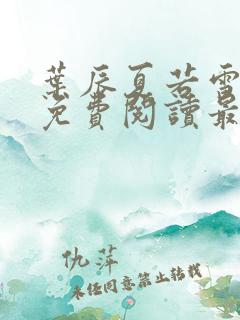 葉辰夏若雪
免費閱讀最
仇萍
未经同意禁止转载